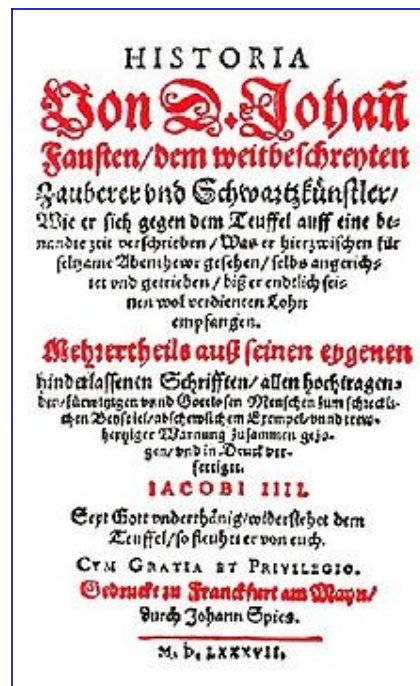 HISTORIA
Von D. Johañ
Fausten/dem weitbeschreyten
Zauberer vnd Schwartzkünstler/
Wie er sich gegen dem Teuffel auff eine be-
nandte zeit verschrieben/Was er hierzwischen für
seltzame Abentheuwr gesehen/selbs angerich-
tet vnd getrieben/biß er endtlich sei-
nen wol verdienten Lohn
empfangen.
Mehrertheils auß seinen eygenen
hinderlassenen Schrifften/allen hochtragen-
den/fürwitzigen vnnd Gottlosen Menschen zum schreckli-
chen Beyspiel/abschewlichem Exempel/vnnd trew-
hertziger Warnung zusammen gezo-
gen/vnd in Druck ver-
fertiget.
IACOBI IIII.
Seyt Gott vnderthänig/widerstehet dem
Teuffel/so fleuhet er von euch.
CVM GRATIA ET PRIVILEGIO.
Gedruckt zu Franckfurt am Mayn/
durch Johann Spies.
M. D. LXXXVII.